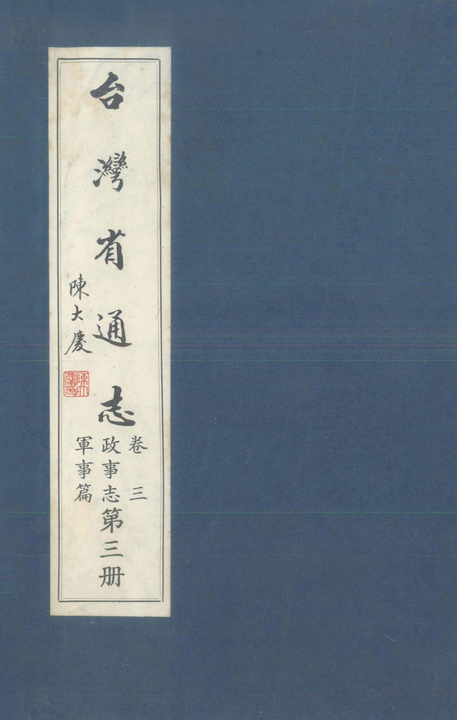 台灣省通志
陳大慶
卷三
政事志第三册
軍事篇